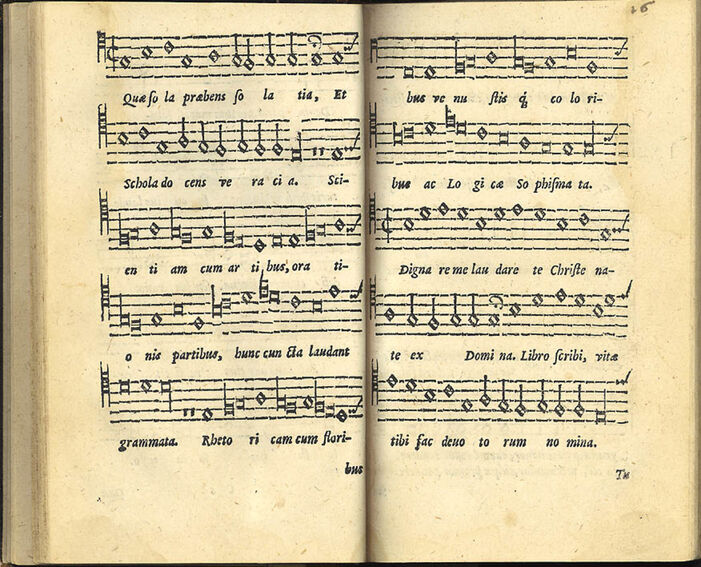 Quæso la præbens so la tia, Et
Schola do cens ve ra ci a. Sci-
en ti am cum ar ti bus, ora ti-
o nis partibus, hunc cun cta laudant
grammata. Rheto ri cam cum flori-
bus
bus ve nu stis q́ co lo ri-
bus ac Lo gi cæ So phisma ta.
Digna re me lau dare te Christe na-
te ex Domi na. Libro scribi, vitæ
tibi fac deuo to rum no mina.
Tu